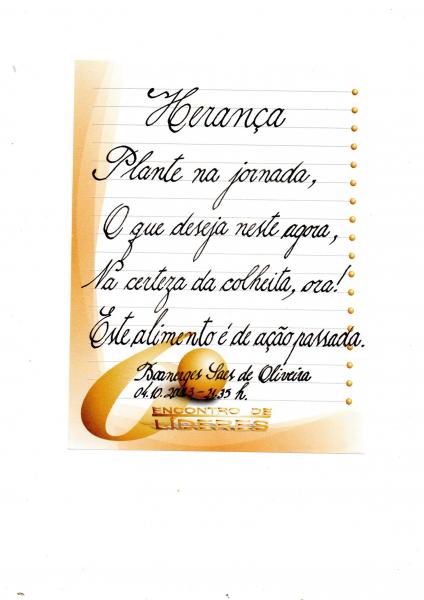 Herança
Plante na jornada,
O que deseja neste agora,
Na certeza da colheita, ora!
Este alimento é de ação passada.
Boanerges Saes de Oliveira
ENCONTRO DE
LÍDERES